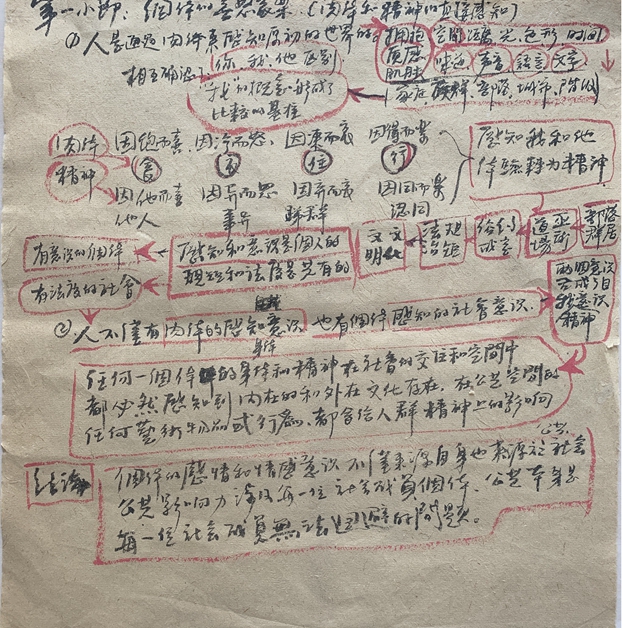 第一小節：個体的喜怒哀樂。(肉体和精神的直接感知)
①人是通過肉体来感知原初的世界的
擁抱 空間 溫度 光 色 形 時間
質感 味道 聲音 語言 文字
肌肤
家庭，族群，部落，城市，階級
相互确認：你，我，他 区别
"我"的概念形成了
比較的基准
肉体 因飽而喜 因冷而怒、因凍而哀 因得而樂
精神 食 衣 住 行
因他而喜 因异而怒 因弃而哀 因同而樂
他人 事异 群 認同
感知精和他
体驗轉为精神
有意识的個体
感知和意识是個人的
理性和法度是共有的
文明 文化
法 規矩
道場
部落 群居
有法度的社會
两個意识
自我意识
精神
②人不僅有肉体的感知意识 也有個体感知的社會意识
任何一個個体的身体和精神在社會的交互和空間中
都必然感知到内在的和外在文化存在，在公共空間的
任何藝術物品或行为，都會给人群精神上的影响
结論
個体的感情和情感意识不僅来源自身也来源於公共社會
公共影响力 每一位社會成員個体，公共
每一位社會成員無法回避的問題。